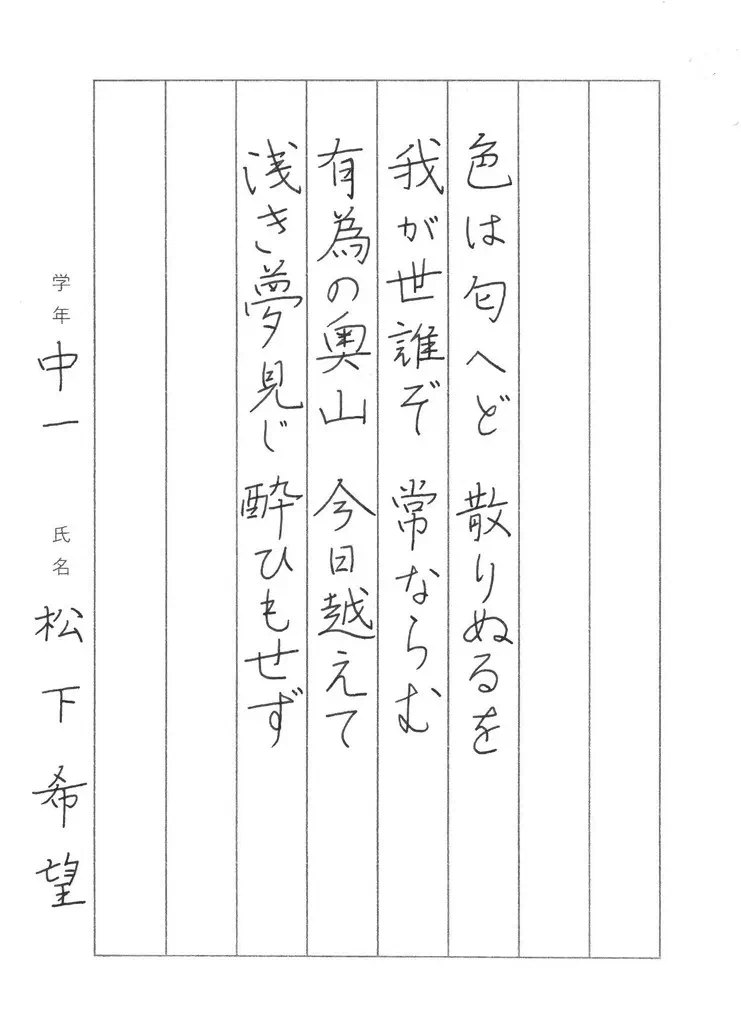 色は匂へど 散りぬるを
我が世誰ぞ 常ならむ
有為の奥山 今日越えて
浅き夢見じ 酔ひもせず
学年 中一 氏名 松下希望